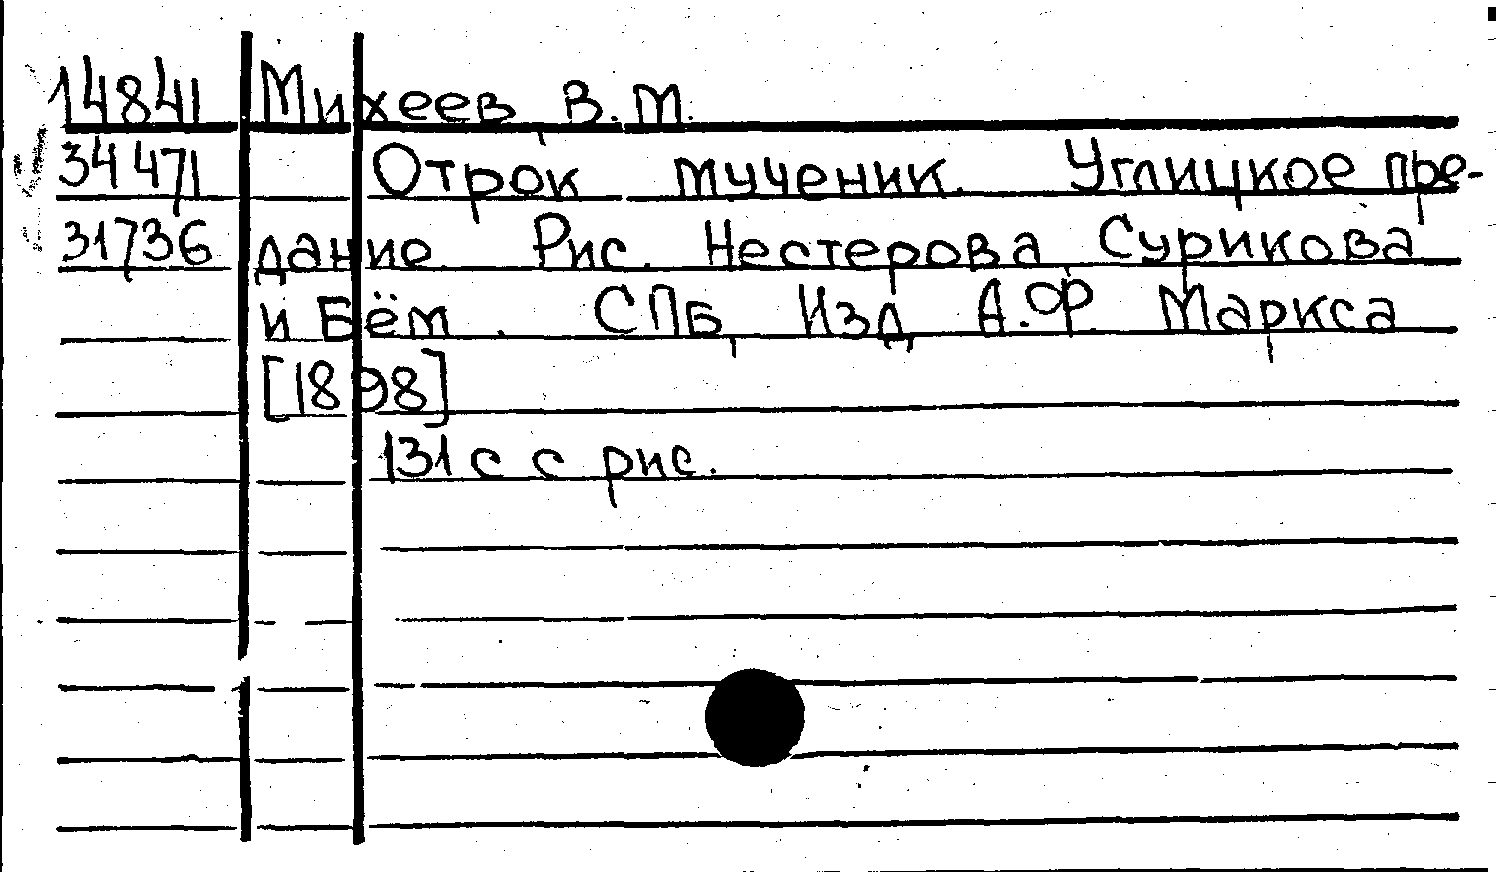 14841 Михеев, В. М.
34471 Отрок мученик. Углицкое пре-
31736 дание. Рис. Нестерова, Сурикова
и Бём. СПБ, Изд. А.Ф. Маркса
[1898]
131 с с рис.